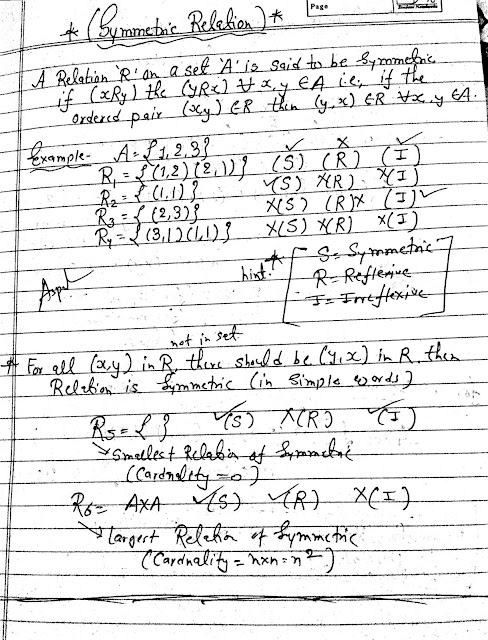 Page
* (Symmetric Relation) *
A Relation 'R' on a set 'A' is said to be Symmetric
if (xRy) the (yRx) ∀ x,y ∈A i.e, if the
ordered pair (x,y) ∈R then (y,x) ∈R ∀x,y ∈A.
Example- A = {1,2,3}
R₁ = {(1,2)(2,1)} ✓(S) ×(R) ✓(I)
R₂ = {(1,1)} ✓(S) ×(R) ×(I)
R₃ = {(2,3)} ×(S) (R)× (I)✓
R₄ = {(3,1)(1,1)} ×(S) ×(R) ×(I)
hint:* S = Symmetric
R = Reflexive
I = Irreflexive
not in set
* For all (x,y) in R, there should be (y,x) in R, then
Relation is Symmetric (in Simple words)
R₅ = { } ✓(S) ×(R) ✓(I)
→ Smallest Relation of Symmetric
(Cardnality = 0)
R₆ = A×A ✓(S) ✓(R) ×(I)
→ largest Relation of Symmetric
(Cardnality = n×n = n²)